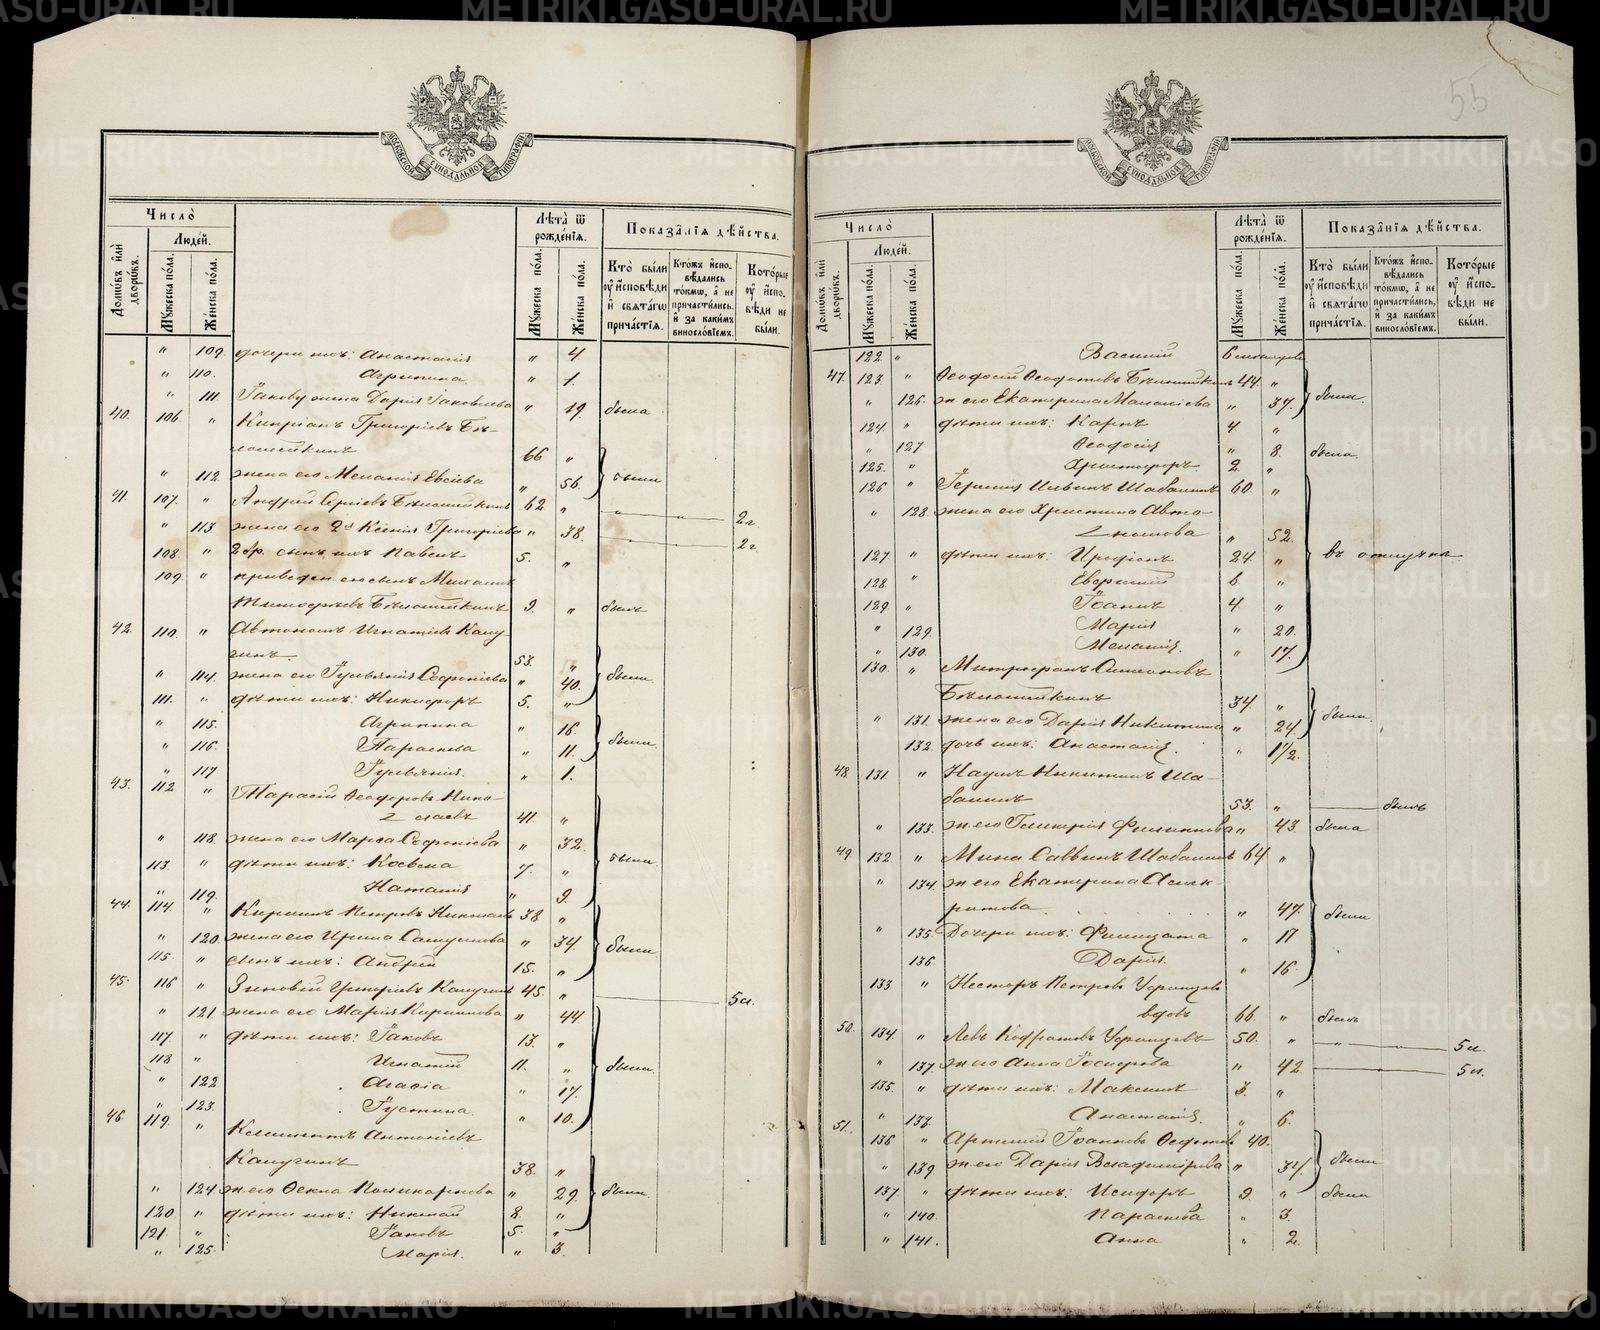 55
МОСКОВСКОЙ СУНОДАЛЬНОЙ ТИПОГРАФІИ
Число̀
Людей.
Домѡвъ и҆лѝ дворѡвъ.
Мꙋжеска пола.
Женска пола.
Лѣта̀ ѿ рожденїѧ.
Мꙋжеска пола.
Женска пола.
Показанїѧ дѣйства.
Кто̀ были ᲂу҆ и҆сповѣди и҆ свѧтагѡ причастїѧ.
Ктожъ и҆сповѣдались токмѡ, а҆ не причастились, и҆ за какимъ винословїемъ.
Которые ᲂу҆ и҆сповѣди не были.
" 109. дочери ихъ: Анастасія " 4.
" 110. Агрипина " 1.
" 111 Іакову жена Дарья Іаковлева " 19. была
40. 106. " Кипріанъ Григорьевъ Бѣ-
лошейкинъ 66 "
" 112 жена его Меланія Евсѣева " 56. были
41. 107. " Андрей Сергіевъ Бѣлошейкинъ 62 " 2 г.
" 113 жена его 2я Ксенія Григорьева " 38. 2 г.
108. " 2 бр. сынъ ихъ Павелъ 5. "
109. " приведен. ею сынъ Михаилъ
Тимофѣевъ Бѣлошейкинъ 9. " былъ
42. 110. " Автономъ Игнатіевъ Калу-
гинъ 53. "
" 114. жена его Гульянія Софоніева " 40. были
111. " дѣти ихъ: Никифоръ 5. "
" 115. Агрипина " 16.
" 116. Параскева " 11. были
" 117 Гульянія. " 1.
43. 112 " Тарасій Ѳеодоровъ Нико-
лаевъ 41 "
" 118. жена его Марѳа Софоніева " 32.
113. " дѣти ихъ: Косьма 7. " были
" 119. Наталія " 9.
44. 114. " Кирилъ Петровъ Николаевъ 38. "
" 120. жена его Ирина Самуилова " 34 были
115. " сынъ ихъ: Андрей 15. "
45. 116 " Зиновій Григорьевъ Калугинъ 45. " 5 л.
" 121. жена его Марія Кирилова " 44.
117. " дѣти ихъ: Іаковъ 13. "
118 " Игнатій 11. " были
" 122. Агафія " 17.
" 123. Іустина. " 10.
46 119. " Климентъ Антоніевъ
Калугинъ 38. "
" 124 ж. его Ѳекла Поликарпова " 29. были
120. " дѣти ихъ: Николай 8. "
121. " Іаковъ 5. "
" 125. Марія. " 3.
Число̀
Людей.
Домѡвъ и҆лѝ дворѡвъ.
Мꙋжеска пола.
Женска пола.
Лѣта̀ ѿ рожденїѧ.
Мꙋжеска пола.
Женска пола.
Показанїѧ дѣйства.
Кто̀ были ᲂу҆ и҆сповѣди и҆ свѧтагѡ причастїѧ.
Ктожъ и҆сповѣдались токмѡ, а҆ не причастились, и҆ за какимъ винословїемъ.
Которые ᲂу҆ и҆сповѣди не были.
122. " Василій
47. 123 " Ѳеодосій Ѳеодотовъ Бѣлошейкинъ 44. "
" 126. ж. его Екатерина Малахіева " 37. были
124. " дѣти ихъ: Карпъ 4. "
" 127 Ѳеодосія " 8. была
125. " Христофоръ 2. "
126 " Герасимъ Ильинъ Шабалинъ 60. "
" 128. жена его Христина Авто-
номова " 52.
127 " дѣти ихъ: Ироѳіонъ 24. " въ отлучкѣ
128. " Евграфій 6. "
129 " Іоаннъ 4. "
" 129. Марія " 20.
" 130. Меланія. " 17.
130. " Митрофанъ Симеоновъ
Бѣлошейкинъ 34. "
" 131. жена его Дарія Никитина " 24. были
132. дочь ихъ: Анастасія. " 1 1/2.
48 131. " Наумъ Никитинъ Ша-
балинъ 53. " былъ
" 133. ж. его Гликерія Филиппова " 43. была
49 132 " Мина Саввинъ Шабалинъ 64 "
" 134. ж. его Екатерина Асинк-
ритова " 47. были
" 135 Дочери ихъ: Филицата " 17
136 Дарія. " 16.
133 " Несторъ Петровъ
вдовъ 66 " былъ
50. 134. " Левъ 50. " 5 л.
" 137 ж. его Анна Іосифова " 42 5 л.
135. " дѣти ихъ: Максимъ 3. "
" 138. Анастасія. " 6.
51. 136 " Артемій Іоанновъ Ѳедотовъ 40.
" 139 ж. его Дарія Владимірова " 34 были
137. " дѣти ихъ: Исидоръ 9. " былъ
" 140. Параскева " 3.
" 141. Анна " 2.
METRIKI.GASO-URAL.RU